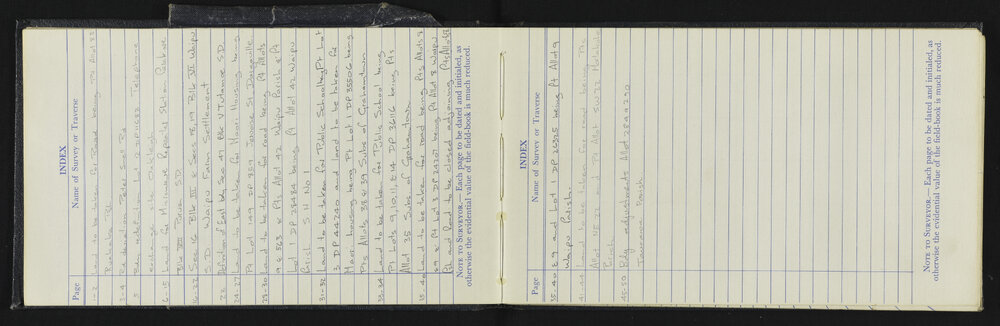 INDEX
Page Name of Survey or Traverse
1-2 Land to be taken for Road being Pt Allot 88
Rd
3-4 Rd
5 Bdy definition Lot 2 DP Telephone
exchange site
6-15 Land for Microwave Repeater Station
Blk SD
16-22 Sec 16 Blk III & Secs 18,19 Blk VI Waipu
S.D. Waipu Farm Settlement
22 of Sec 47 Blk V Tutamoe S.D.
24-27 Land to be taken for Maori Housing being
Pt Lot 149 DP 3569 St Dargaville
29-30 Land to be taken for road being Pt Allots
9 & 563 & Pts Allot 42 Waipu Parish & Pt
Lot DP 28484 being Pt Allot 42 Waipu
Parish S H No 1
31-32 Land to be taken for Public School being Pt Lot
3 DP 44240 and land to be taken for
Maori housing being Pt Lot DP 35506 being
Pts Allots 38 & 39 Subs of Grahamtown
33-34 Land to be taken for Public School being
Pt Lots 9, 10, 11, & 14 DP 36116 being Pts
Allot 35 Subs of Grahamtown
35-40 Land to be taken for road being Pts Allots 8
69 & Pt Lot 3 DP 24207 being Pt Allot 8 Waipu
Ph and land to be closed adjoining Pts Allots
NOTE TO SURVEYOR.—Each page to be dated and initialed, as
otherwise the evidential value of the field-book is much reduced.
INDEX
Page Name of Survey or Traverse
35-40 & 9 and Lot 1 DP 25325 being Pt Allot 9
Waipu Parish.
41-44 Land to be taken for road being Pts
Allot and Pt Allot SW37
Parish
45-50 Bdy adjustments Allot
Parish
NOTE TO SURVEYOR.—Each page to be dated and initialed, as
otherwise the evidential value of the field-book is much reduced.